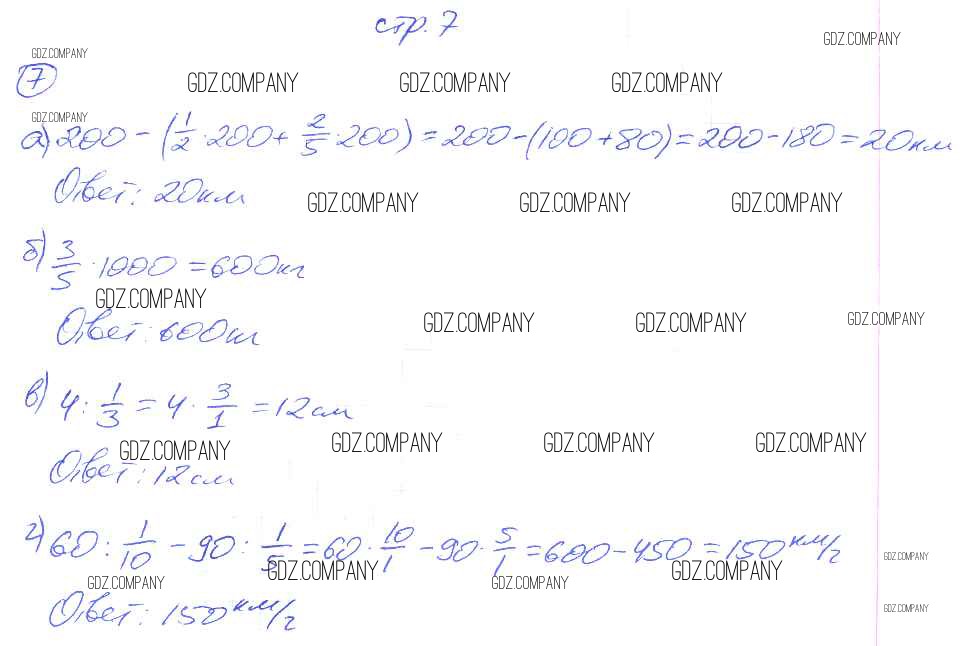 стр. 7
GDZ.COMPANY
GDZ.COMPANY
7
GDZ.COMPANY GDZ.COMPANY GDZ.COMPANY
GDZ.COMPANY
а) 200 - (1/2 · 200 + 2/5 · 200) = 200 - (100 + 80) = 200 - 180 = 20 км
Ответ: 20 км
GDZ.COMPANY GDZ.COMPANY GDZ.COMPANY
б) 3/5 · 1000 = 600 кг
GDZ.COMPANY
Ответ: 600 кг
GDZ.COMPANY GDZ.COMPANY GDZ.COMPANY
в) 4 : 1/3 = 4 · 3/1 = 12 см
GDZ.COMPANY GDZ.COMPANY GDZ.COMPANY GDZ.COMPANY
Ответ: 12 см
г) 60 : 1/10 - 90 : 1/5 = 60 · 10/1 - 90 · 5/1 = 600 - 450 = 150 км/г
GDZ.COMPANY
GDZ.COMPANY GDZ.COMPANY GDZ.COMPANY GDZ.COMPANY
Ответ: 150 км/г
GDZ.COMPANY